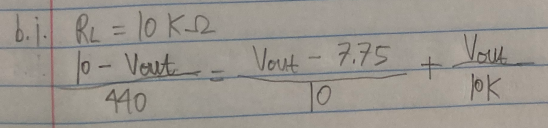 b.i. RL = 10 KΩ
10 - Vout / 440 = Vout - 7.75 / 10 + Vout / 10K